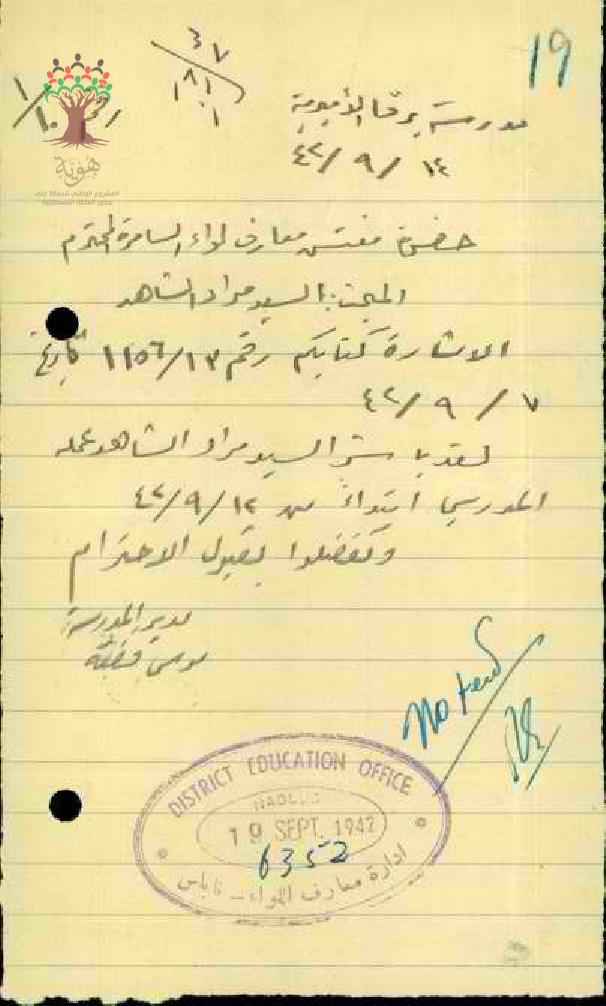 19
٤٧
١٨١
١
مدرسة برقا الأميرية
١٤ / ٩ / ٤٢
حضرة مفتش معارف لواء السامرة المحترم
المبحث: السيد مراد الشاهد
الاشارة كتابكم رقم ١١٥٦/١٣ تاريخ
٧ / ٩ / ٤٢
لقد باشر السيد مراد الشاهد عمله
المدرسي ابتداءً من ١٢/٩/٤٢
وتفضلوا بقبول الاحترام
مدير المدرسة
موسى
DISTRICT EDUCATION OFFICE
NABLUS
19 SEPT. 1942
6352
ادارة معارف اللواء - نابلس
هوية
المشروع الوطني للحفاظ على
جذور العائلة الفلسطينية